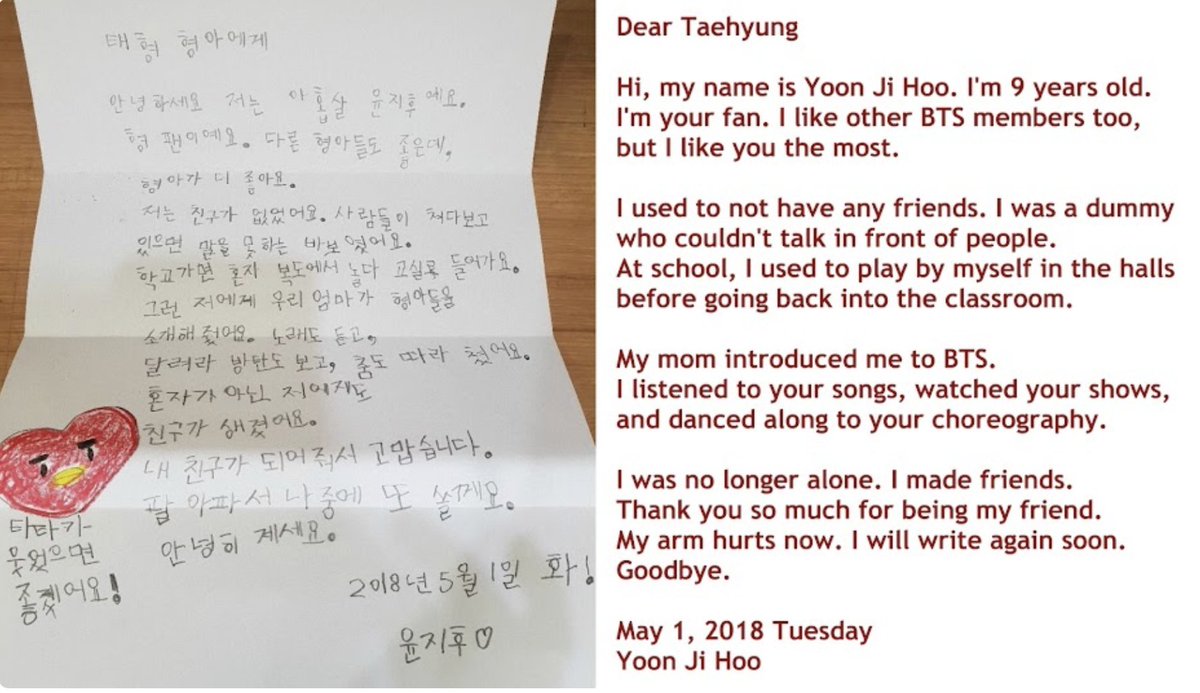 태형 형아에게
안녕하세요 저는 아홉살 윤지후예요.
형 팬이예요. 다른 형아들도 좋은데,
형아가 더 좋아요.
저는 친구가 없었어요. 사람들이 쳐다보고
있으면 말을 못하는 바보 였어요.
학교가면 혼자 복도에서 놀다 교실로 들어가요.
그런 저에게 우리 엄마가 형아들을
소개해 줬어요. 노래도 듣고,
달려라 방탄도 보고, 춤도 따라 췄어요.
혼자가 아닌 저에게도
친구가 생겼어요.
내 친구가 되어줘서 고맙습니다.
팔 아파서 나중에 또 쓸께요.
안녕히 계세요.
타타가
웃었으면
좋겠어요!
2018년 5월 1일 화!
윤지후♡
Dear Taehyung
Hi, my name is Yoon Ji Hoo. I'm 9 years old.
I'm your fan. I like other BTS members too,
but I like you the most.
I used to not have any friends. I was a dummy
who couldn't talk in front of people.
At school, I used to play by myself in the halls
before going back into the classroom.
My mom introduced me to BTS.
I listened to your songs, watched your shows,
and danced along to your choreography.
I was no longer alone. I made friends.
Thank you so much for being my friend.
My arm hurts now. I will write again soon.
Goodbye.
May 1, 2018 Tuesday
Yoon Ji Hoo